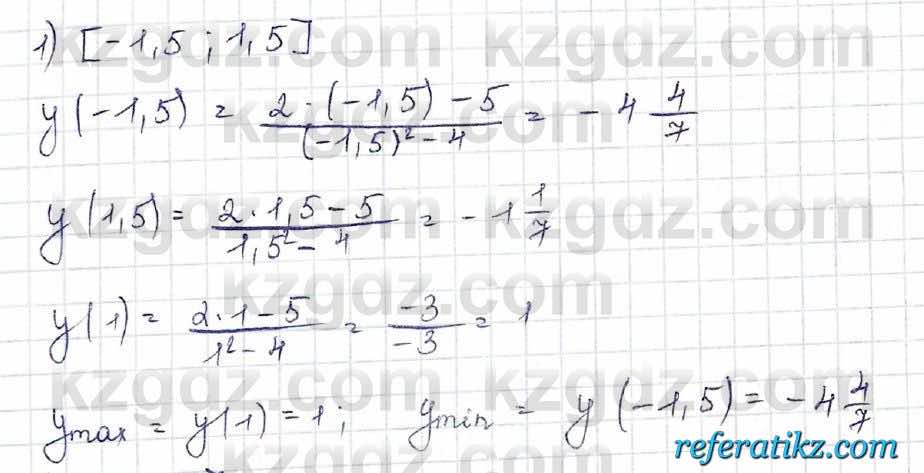 1) [-1,5 ; 1,5]
y(-1,5) = \frac{2 \cdot (-1,5) - 5}{(-1,5)^2 - 4} = -4\frac{4}{7}
y(1,5) = \frac{2 \cdot 1,5 - 5}{1,5^2 - 4} = -1\frac{1}{7}
y(1) = \frac{2 \cdot 1 - 5}{1^2 - 4} = \frac{-3}{-3} = 1
y max = y(1) = 1; y min = y(-1,5) = -4\frac{4}{7}
kzgdz.com
referatikz.com